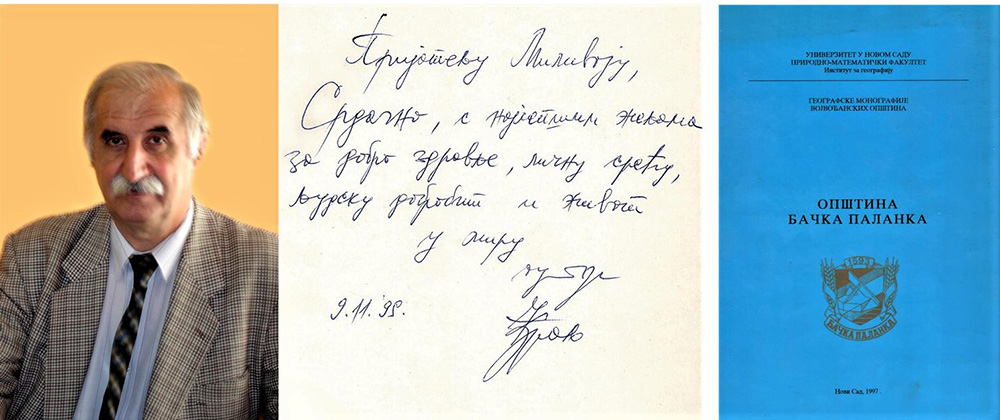 Пријатељу Миливоју,
Срдачно, с најлепшим жељама
за добро здравље, личну срећу,
људску добробит и живот
у миру
аутор
9.11.'98.
УНИВЕРЗИТЕТ У НОВОМ САДУ
ПРИРОДНО-МАТЕМАТИЧКИ ФАКУЛТЕТ
Институт за географију
ГЕОГРАФСКЕ МОНОГРАФИЈЕ
ВОЈВОЂАНСКИХ ОПШТИНА
ОПШТИНА
БАЧКА ПАЛАНКА
1593
БАЧКА ПАЛАНКА
Нови Сад, 1997.